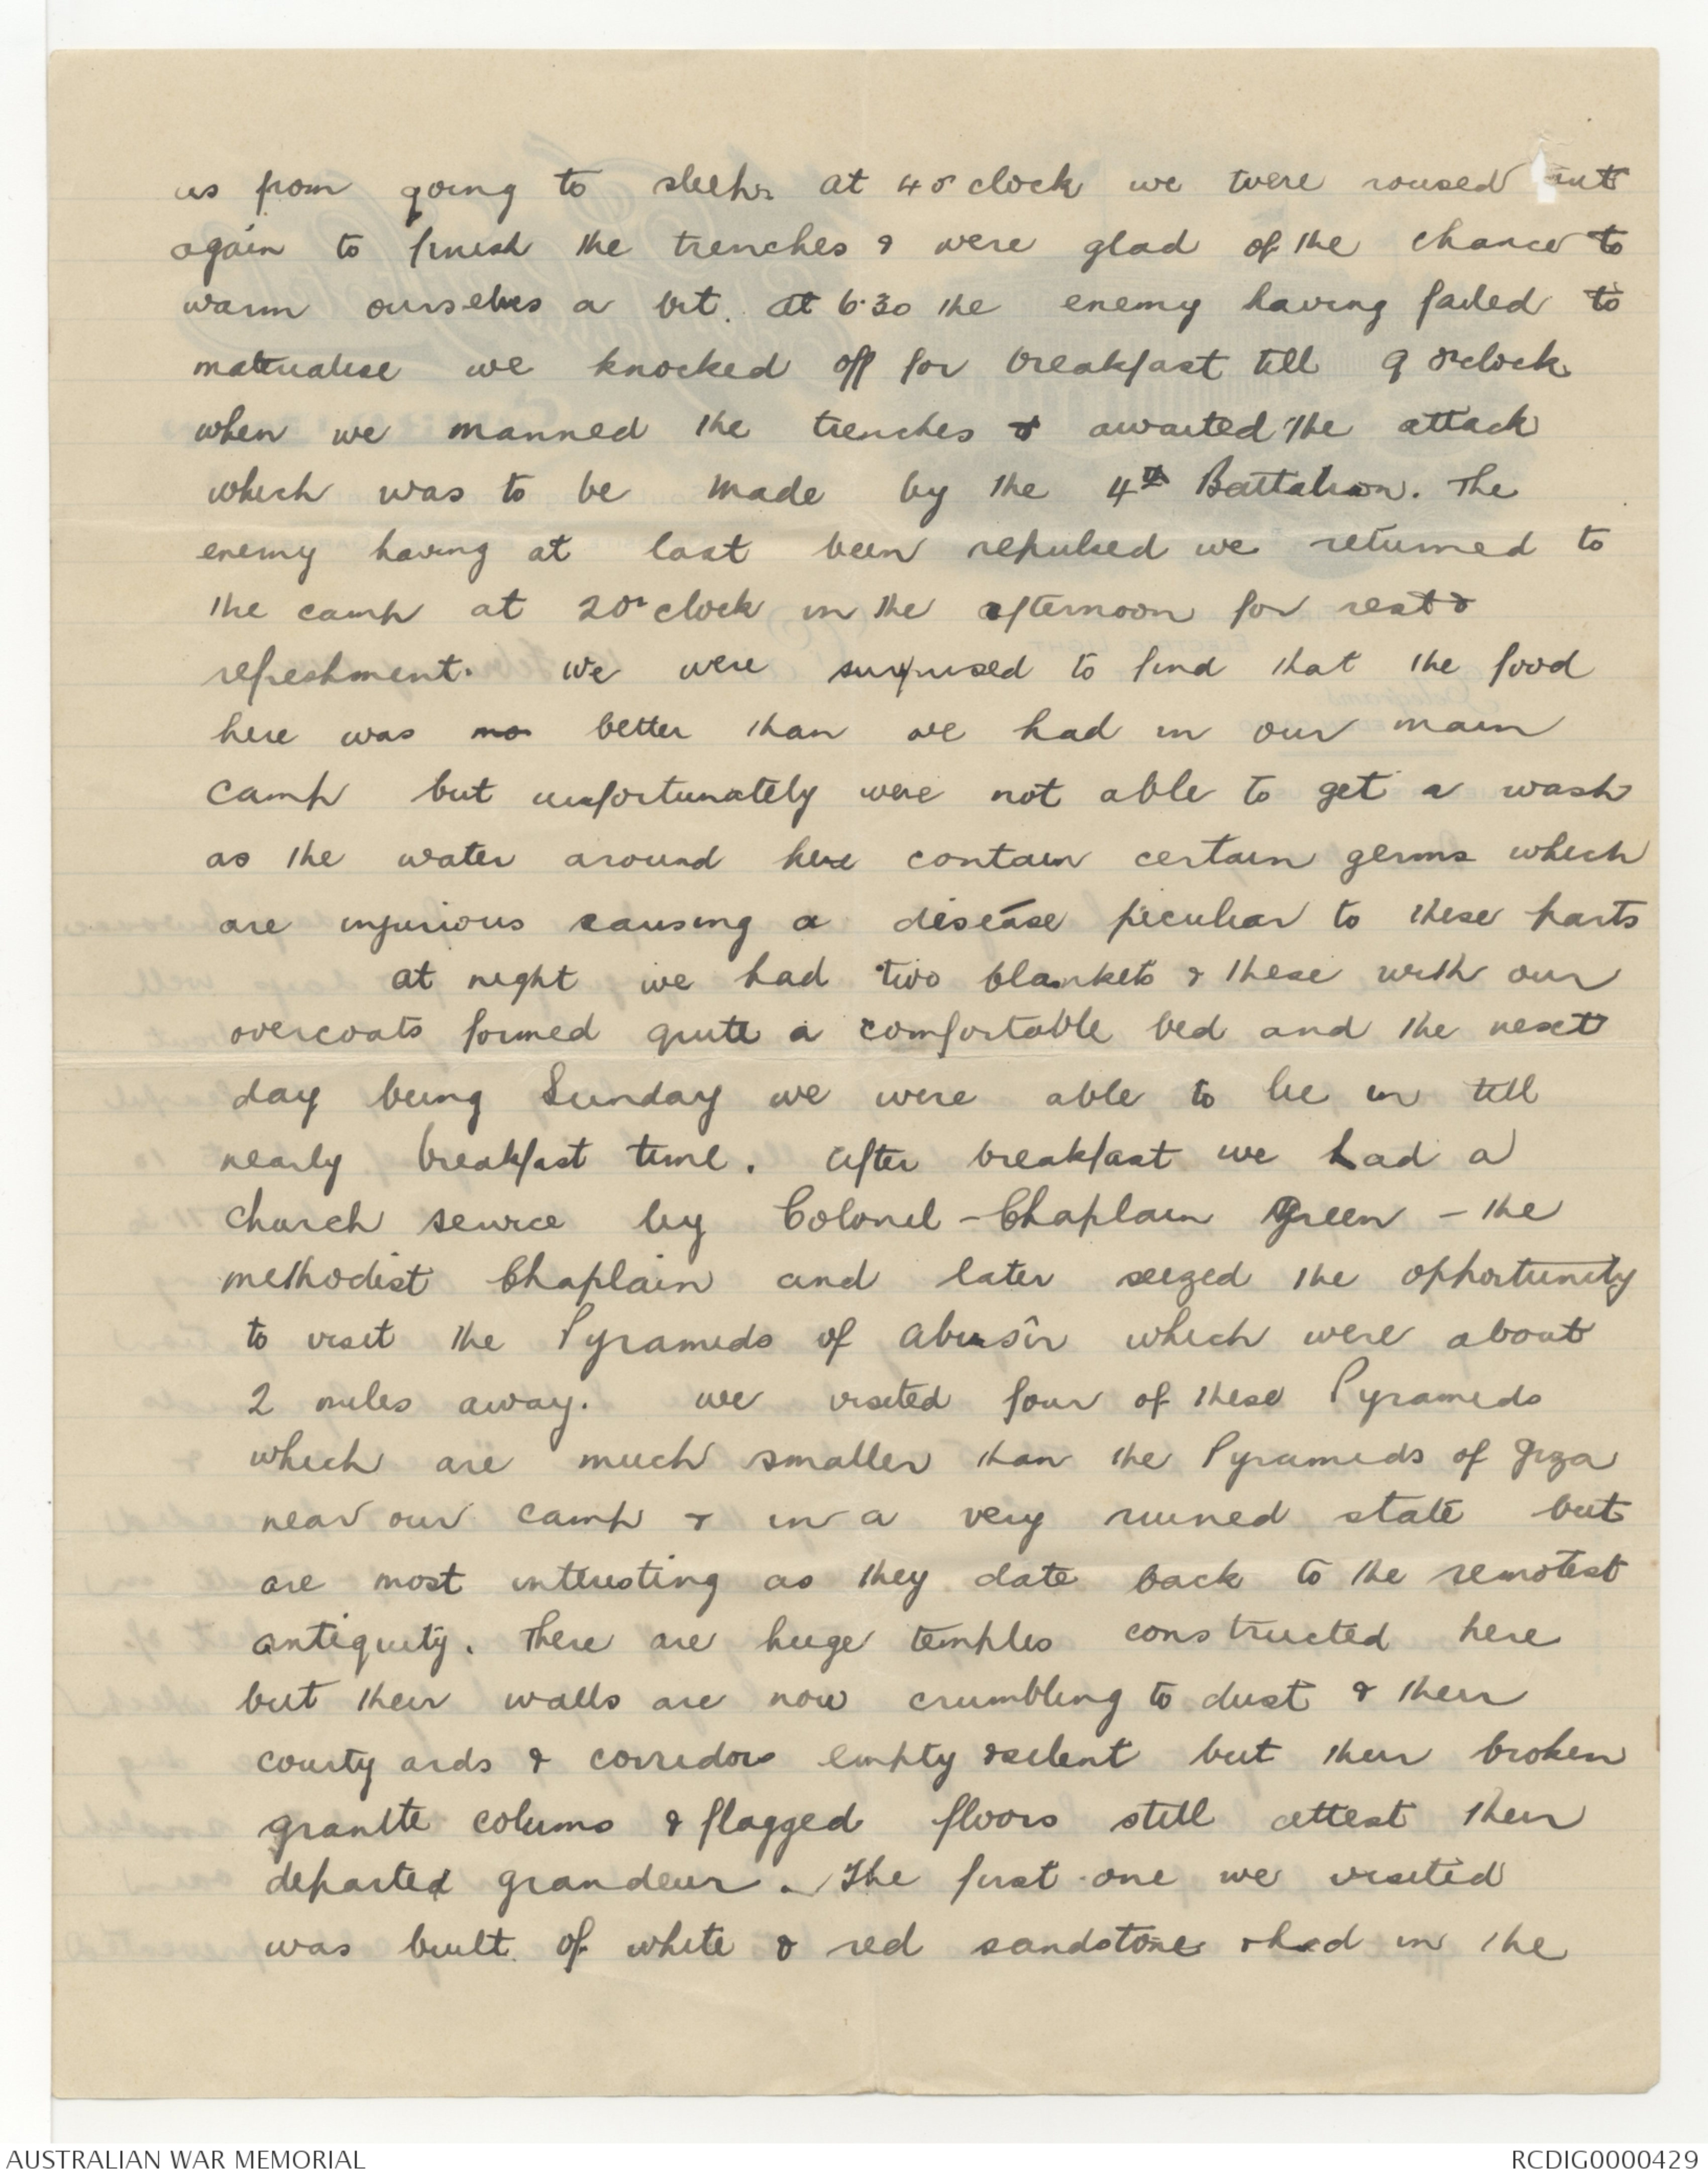 us from going to sleep. At 4 o'clock we were roused out
again to finish the trenches & were glad of the chance to
warm ourselves a bit. At 6.30 the enemy having failed to
materialise we knocked off for breakfast till 9 o'clock
when we manned the trenches & awaited the attack
which was to be made by the 4th Battalion. The
enemy having at last been repulsed we returned to
the camp at 2 o'clock in the afternoon for rest &
refreshment. We were surprised to find that the food
here was no better than we had in our main
camp but unfortunately were not able to get a wash
as the water around here contain certain germs which
are injurious causing a disease peculiar to these parts
At night we had two blankets & these with our
overcoats formed quite a comfortable bed and the next
day being Sunday we were able to lie in till
nearly breakfast time. After breakfast we had a
church service by Colonel-Chaplain Green - the
methodist Chaplain and later seized the opportunity
to visit the Pyramids of Abusîr which were about
2 miles away. We visited four of these Pyramids
which are much smaller than the Pyramids of Giza
near our camp & in a very ruined state but
are most interesting as they date back to the remotest
antiquity. There are huge temples constructed here
but their walls are now crumbling to dust & their
courty ards & corridors empty & silent but their broken
granite colums & flagged floors still attest their
departed grandeur. The first one we visited
was built of white & red sandstone & had in the
AUSTRALIAN WAR MEMORIAL
RCDIG0000429